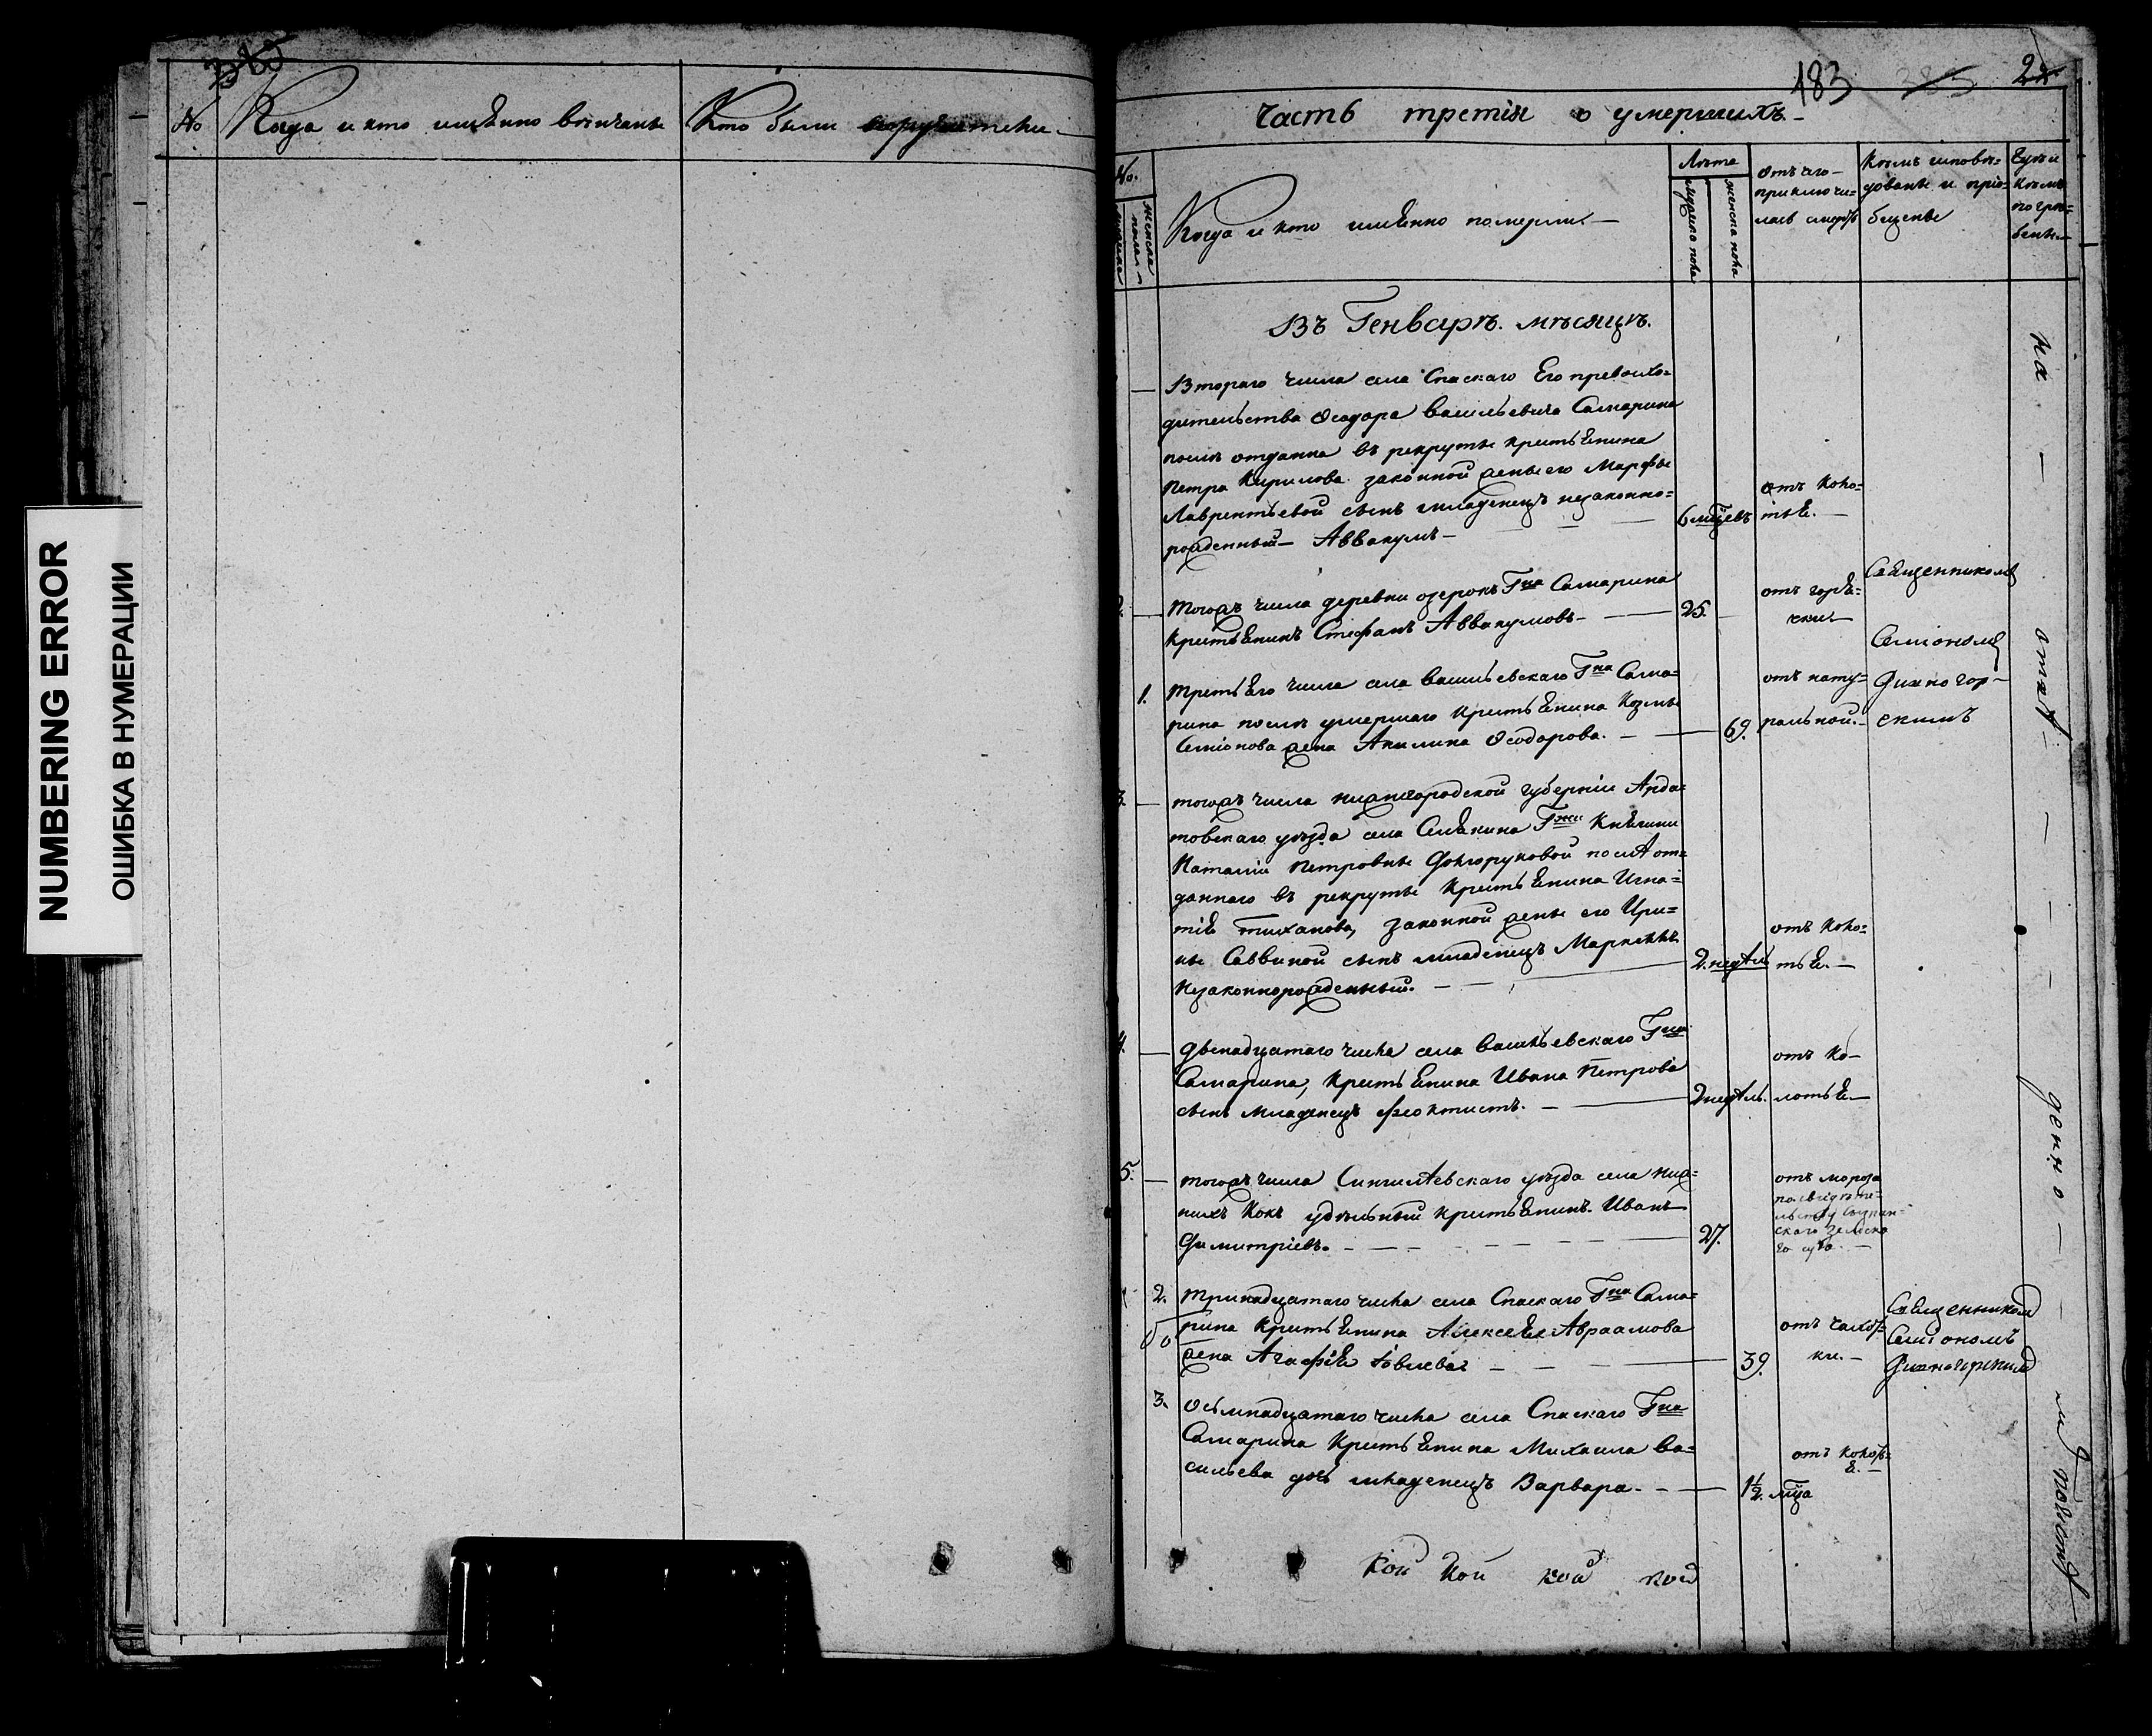 NUMBERING ERROR
ОШИБКА В НУМЕРАЦИИ
№
Когда и кто имянно венчаны
Кто были поручители
183
Часть третія о умершихъ
№
Когда и кто имянно померли
Лѣта
мужеска пола
женска пола
Отъ чего
приключи=
лась смерть
Кѣмъ исповѣ=
дованы и прі=
общены
Гдѣ и
кѣмъ
погре=
бены
Въ Генварѣ мѣсяцѣ.
Втораго числа села Спаскаго Его превосхо=
дительства Ѳеодора Васильевича Самарина
послѣ отданна въ рекруты крестьянина
Петра Кирилова законной жены его Марфы
Лаврентьевой сынъ младенецъ незаконно=
рожденный Аввакумъ
6 мцевъ
отъ коло=
тья.
тогожъ числа деревни озерокъ Гна Самарина
крестьянинъ Стефанъ Аввакумовъ
25.
отъ горя=
чки
Священникомъ
Симіономъ
Дивногор=
скимъ
1. третьяго числа села Васильевскаго Гна Сама=
рина послѣ умершаго крестьянина Козмы
Симіонова жена Акилина Ѳеодорова.
69.
отъ нату=
ральной.
3. тогожъ числа нижегородской губерніи Арда=
товскаго уѣзда села Сіякина Гжи Княгини
Наталіи Петровны Долгоруковой послѣ от=
даннаго въ рекруты крестьянина Игна=
тія Тиханова, законной жены его Ири=
ны Саввиной сынъ младенецъ Маркеллъ
незаконнорожденный.
2. недѣль
отъ коло=
тья.
4. двенадцатаго числа села Васильевскаго Гна
Самарина, крестьянина Ивана Петрова
сынъ младенецъ Феоктистъ.
2 недѣль.
отъ ко=
лотья
5. тогожъ числа Сингилѣевскаго уѣзда села
удѣльный крестьянинъ Иванъ
Димитріевъ.
27.
отъ мороза
по свидѣте=
льству
скаго земска
го суда.
2. тринадцатаго числа села Спаскаго Гна Сама=
рина крестьянина Алексея Авраамова
жена Агафія Іовлева
39.
отъ чахот=
ки.
Священникомъ
Симіономъ
Дивногорскимъ
3. осьмнадцатаго числа села Спаскаго Гна
Самарина крестьянина Михаила Ва=
сильева дочь младенецъ Варвара
1½. мца
отъ колоть=
я.
на отведенномъ мѣстѣ
кой кой кой кой